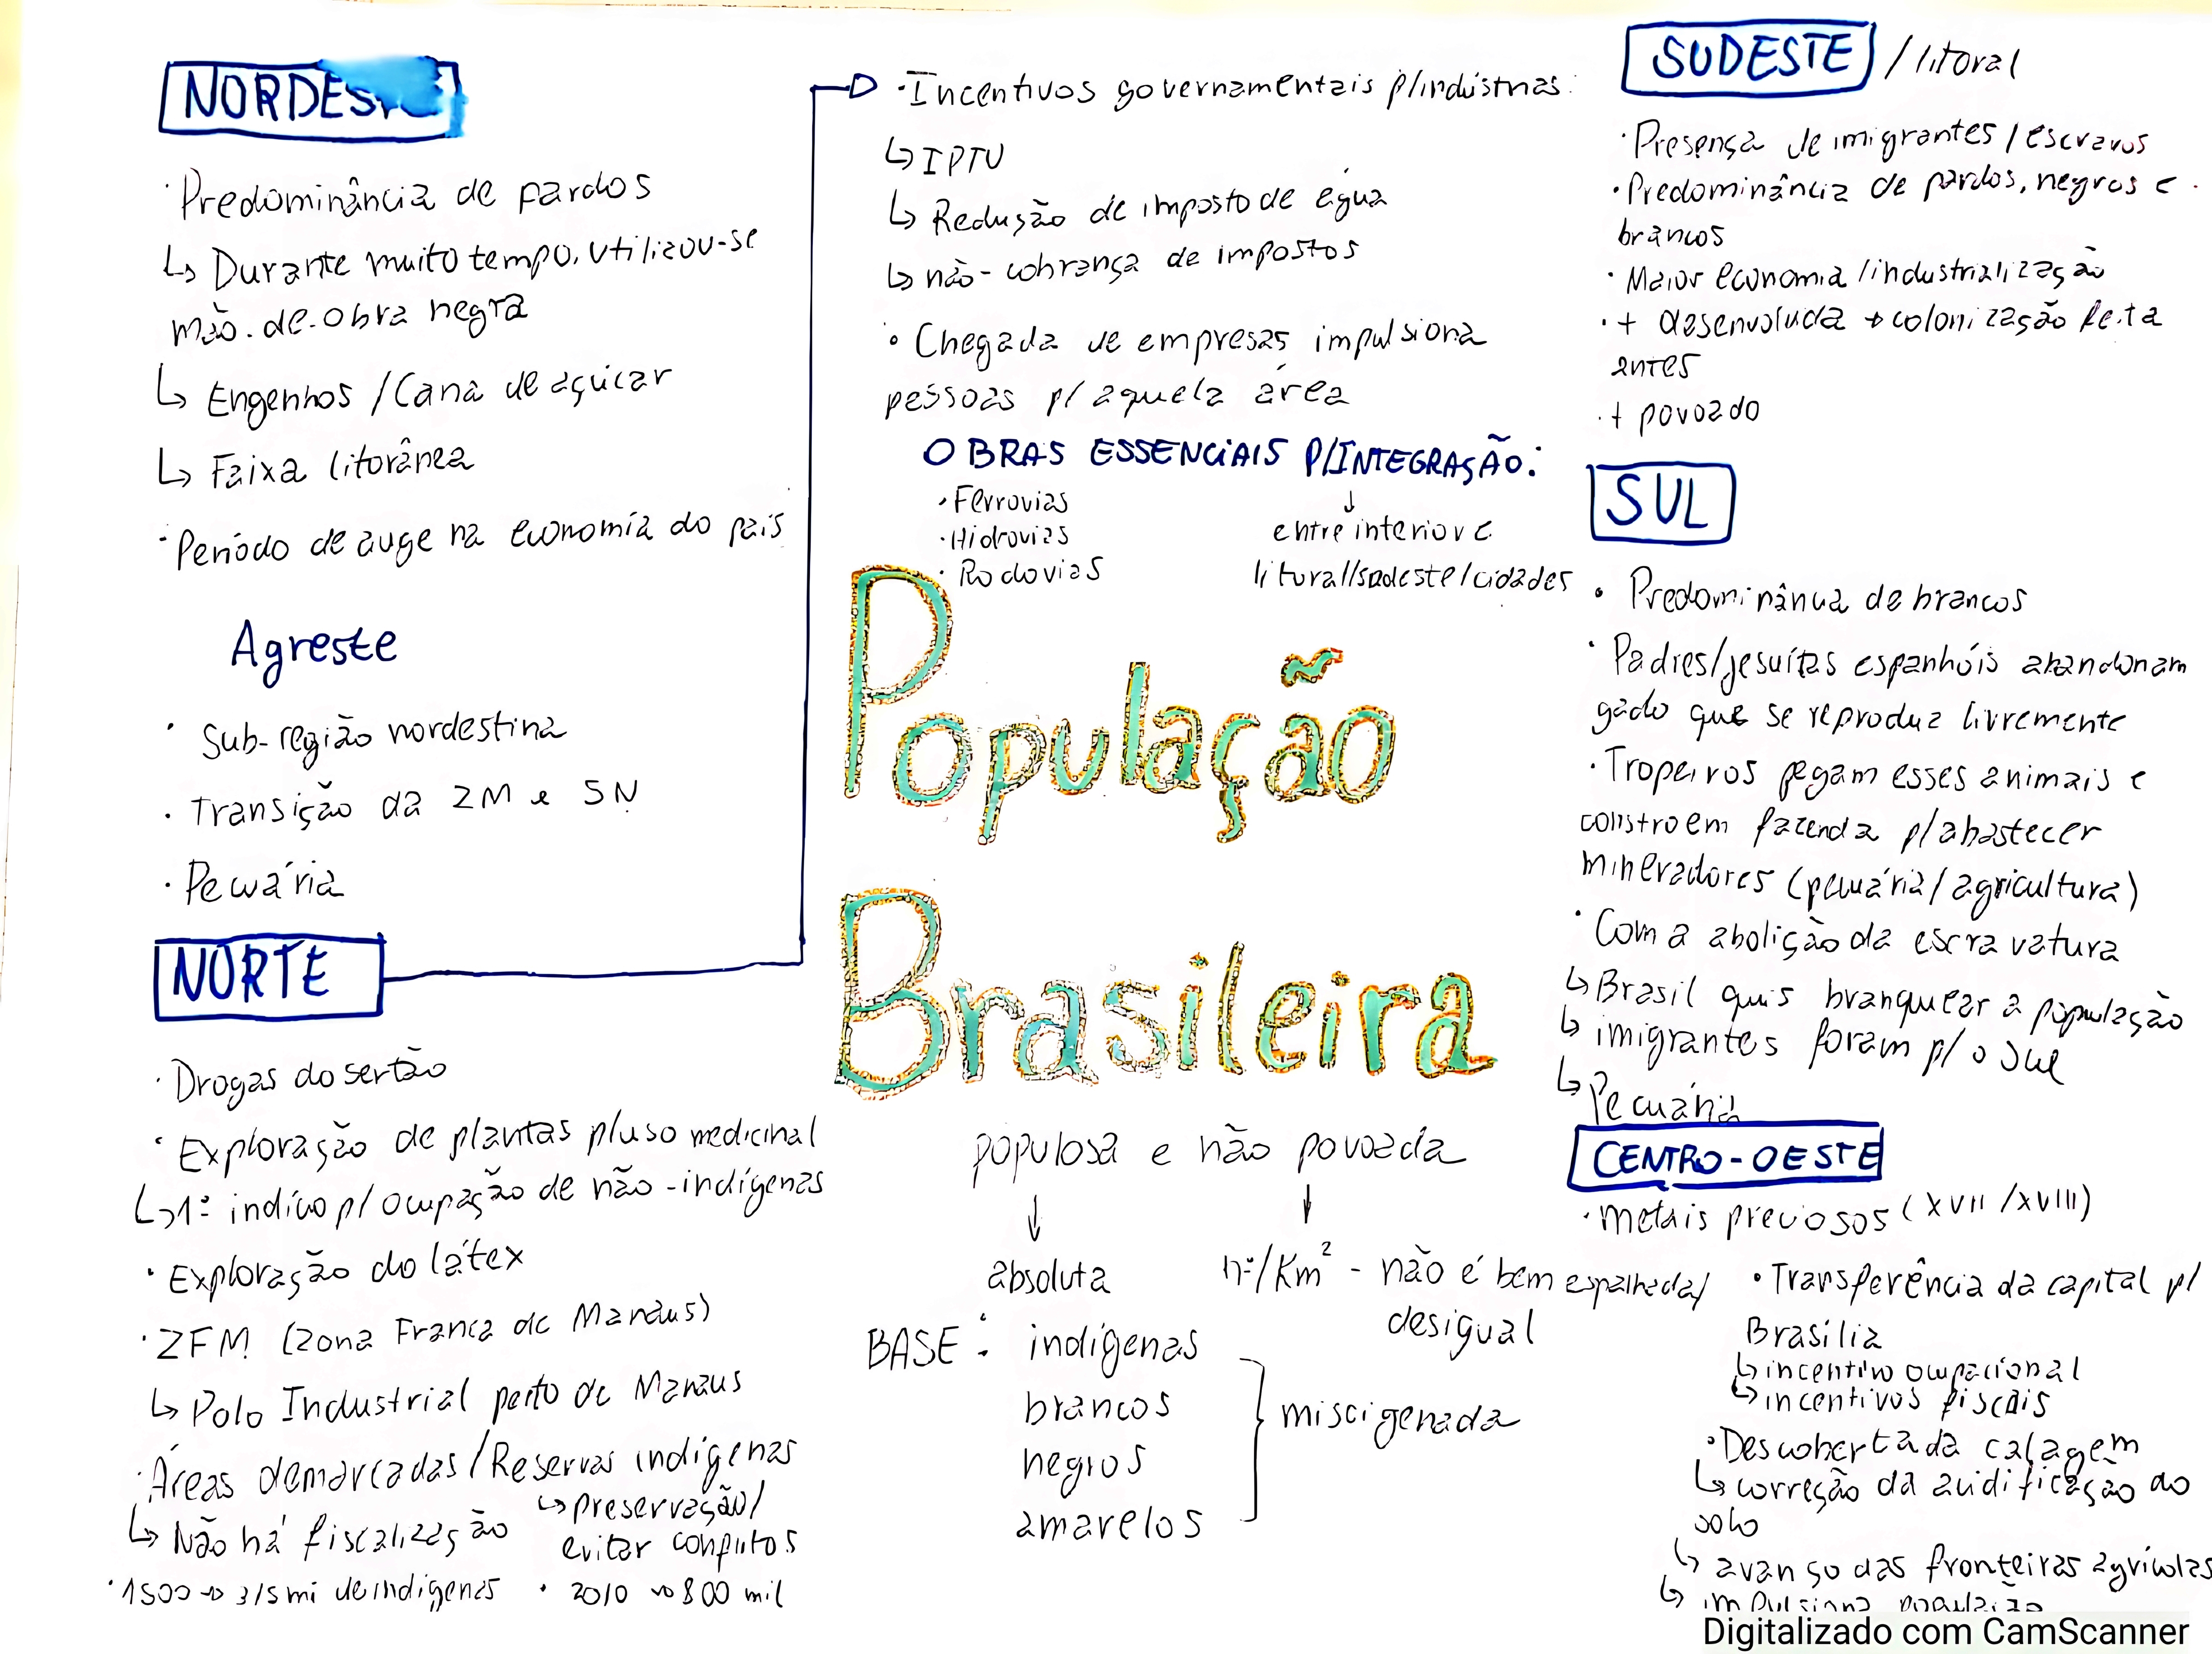 NORDESTE
· Predominância de pardos
↳ Durante muito tempo, utilizou-se
mão-de-obra negra
↳ Engenhos / Cana de açúcar
↳ Faixa litorânea
· Período de auge na economia do país
Agreste
· Sub-região nordestina
· Transição da ZM e SN
· Pecuária
NORTE
· Drogas do sertão
· Exploração de plantas p/uso medicinal
↳ 1º indício p/ ocupação de não-indígenas
· Exploração do látex
· ZFM (Zona Franca de Manaus)
↳ Polo Industrial perto de Manaus
· Áreas demarcadas/Reservas indígenas
↳ Não há fiscalização
↳ preservação/
evitar conflitos
· 1500 → 3/5 mi de indígenas
· 2010 → 800 mil
· Incentivos governamentais p/indústrias:
↳ IPTU
↳ Redução de imposto de água
↳ não-cobrança de impostos
· Chegada de empresas impulsiona
pessoas p/ aquela área
OBRAS ESSENCIAIS P/INTEGRAÇÃO:
· Ferrovias
· Hidrovias
· Rodovias
↓
entre interior e
litoral/sudeste/cidades
População
Brasileira
populosa e não povoada
↓ ↓
absoluta
nº/Km² - não é bem espalhada/
desigual
BASE: indígenas
brancos
negros
amarelos
miscigenada
SUDESTE / litoral
· Presença de imigrantes / escravos
· Predominância de pardos, negros e
brancos
· Maior economia /industrialização
· + desenvolvida → colonização feita
antes
· + povoado
SUL
· Predominância de brancos
· Padres/jesuítas espanhóis abandonam
gado que se reproduz livremente
· Tropeiros pegam esses animais e
constroem fazenda p/abastecer
mineradores (pecuária/agricultura)
· Com a abolição da escravatura
↳ Brasil quis branquear a população
↳ imigrantes foram p/ o Sul
↳ Pecuária
CENTRO-OESTE
· metais preciosos (XVII /XVIII)
· Transferência da capital p/
Brasília
↳ incentivo ocupacional
↳ incentivos fiscais
· Descoberta da calagem
↳ correção da acidificação do
solo
↳ avanço das fronteiras agrícolas
↳ impulsiona população
Digitalizado com CamScanner